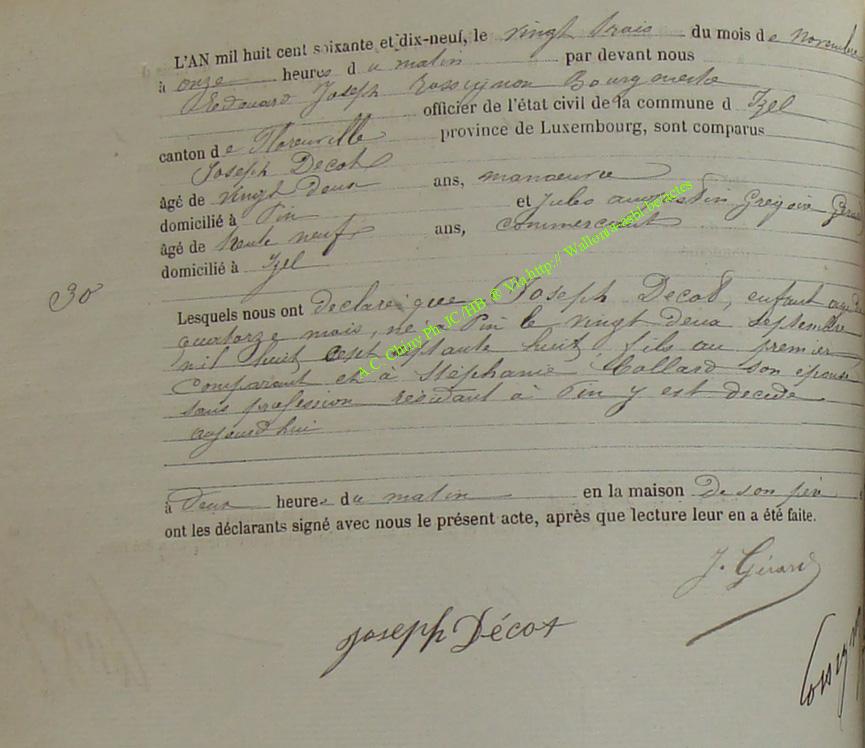 L'AN mil huit cent soixante et dix-neuf, le vingt trois du mois de novembre
à onze heures du matin par devant nous
Edouard Joseph Rossignon Bourgmestre
officier de l'état civil de la commune d Izel
canton de Florenville province de Luxembourg, sont comparus
Joseph Decot
âgé de vingt deux ans, manoeuvre
domicilié à Pin et Jules augustin Grégoire Gérard
âgé de trente neuf ans, commercant
domicilié à Izel
30
Lesquels nous ont declaré que Joseph Decot, enfant agé de
quatorze mois, né à Pin le vingt deux septembre
mil huit cent septante huit fils au premier
comparant et à Stéphanie Collard son épouse
sans profession residant à Pin y est decédé
aujourd'hui
à deux heures du matin en la maison de son père
ont les déclarants signé avec nous le présent acte, après que lecture leur en a été faite.
J. Gérard
Joseph Décot
A.C. Chiny Ph JC /HB @ Via http:// Wallonia-asbl-benactes